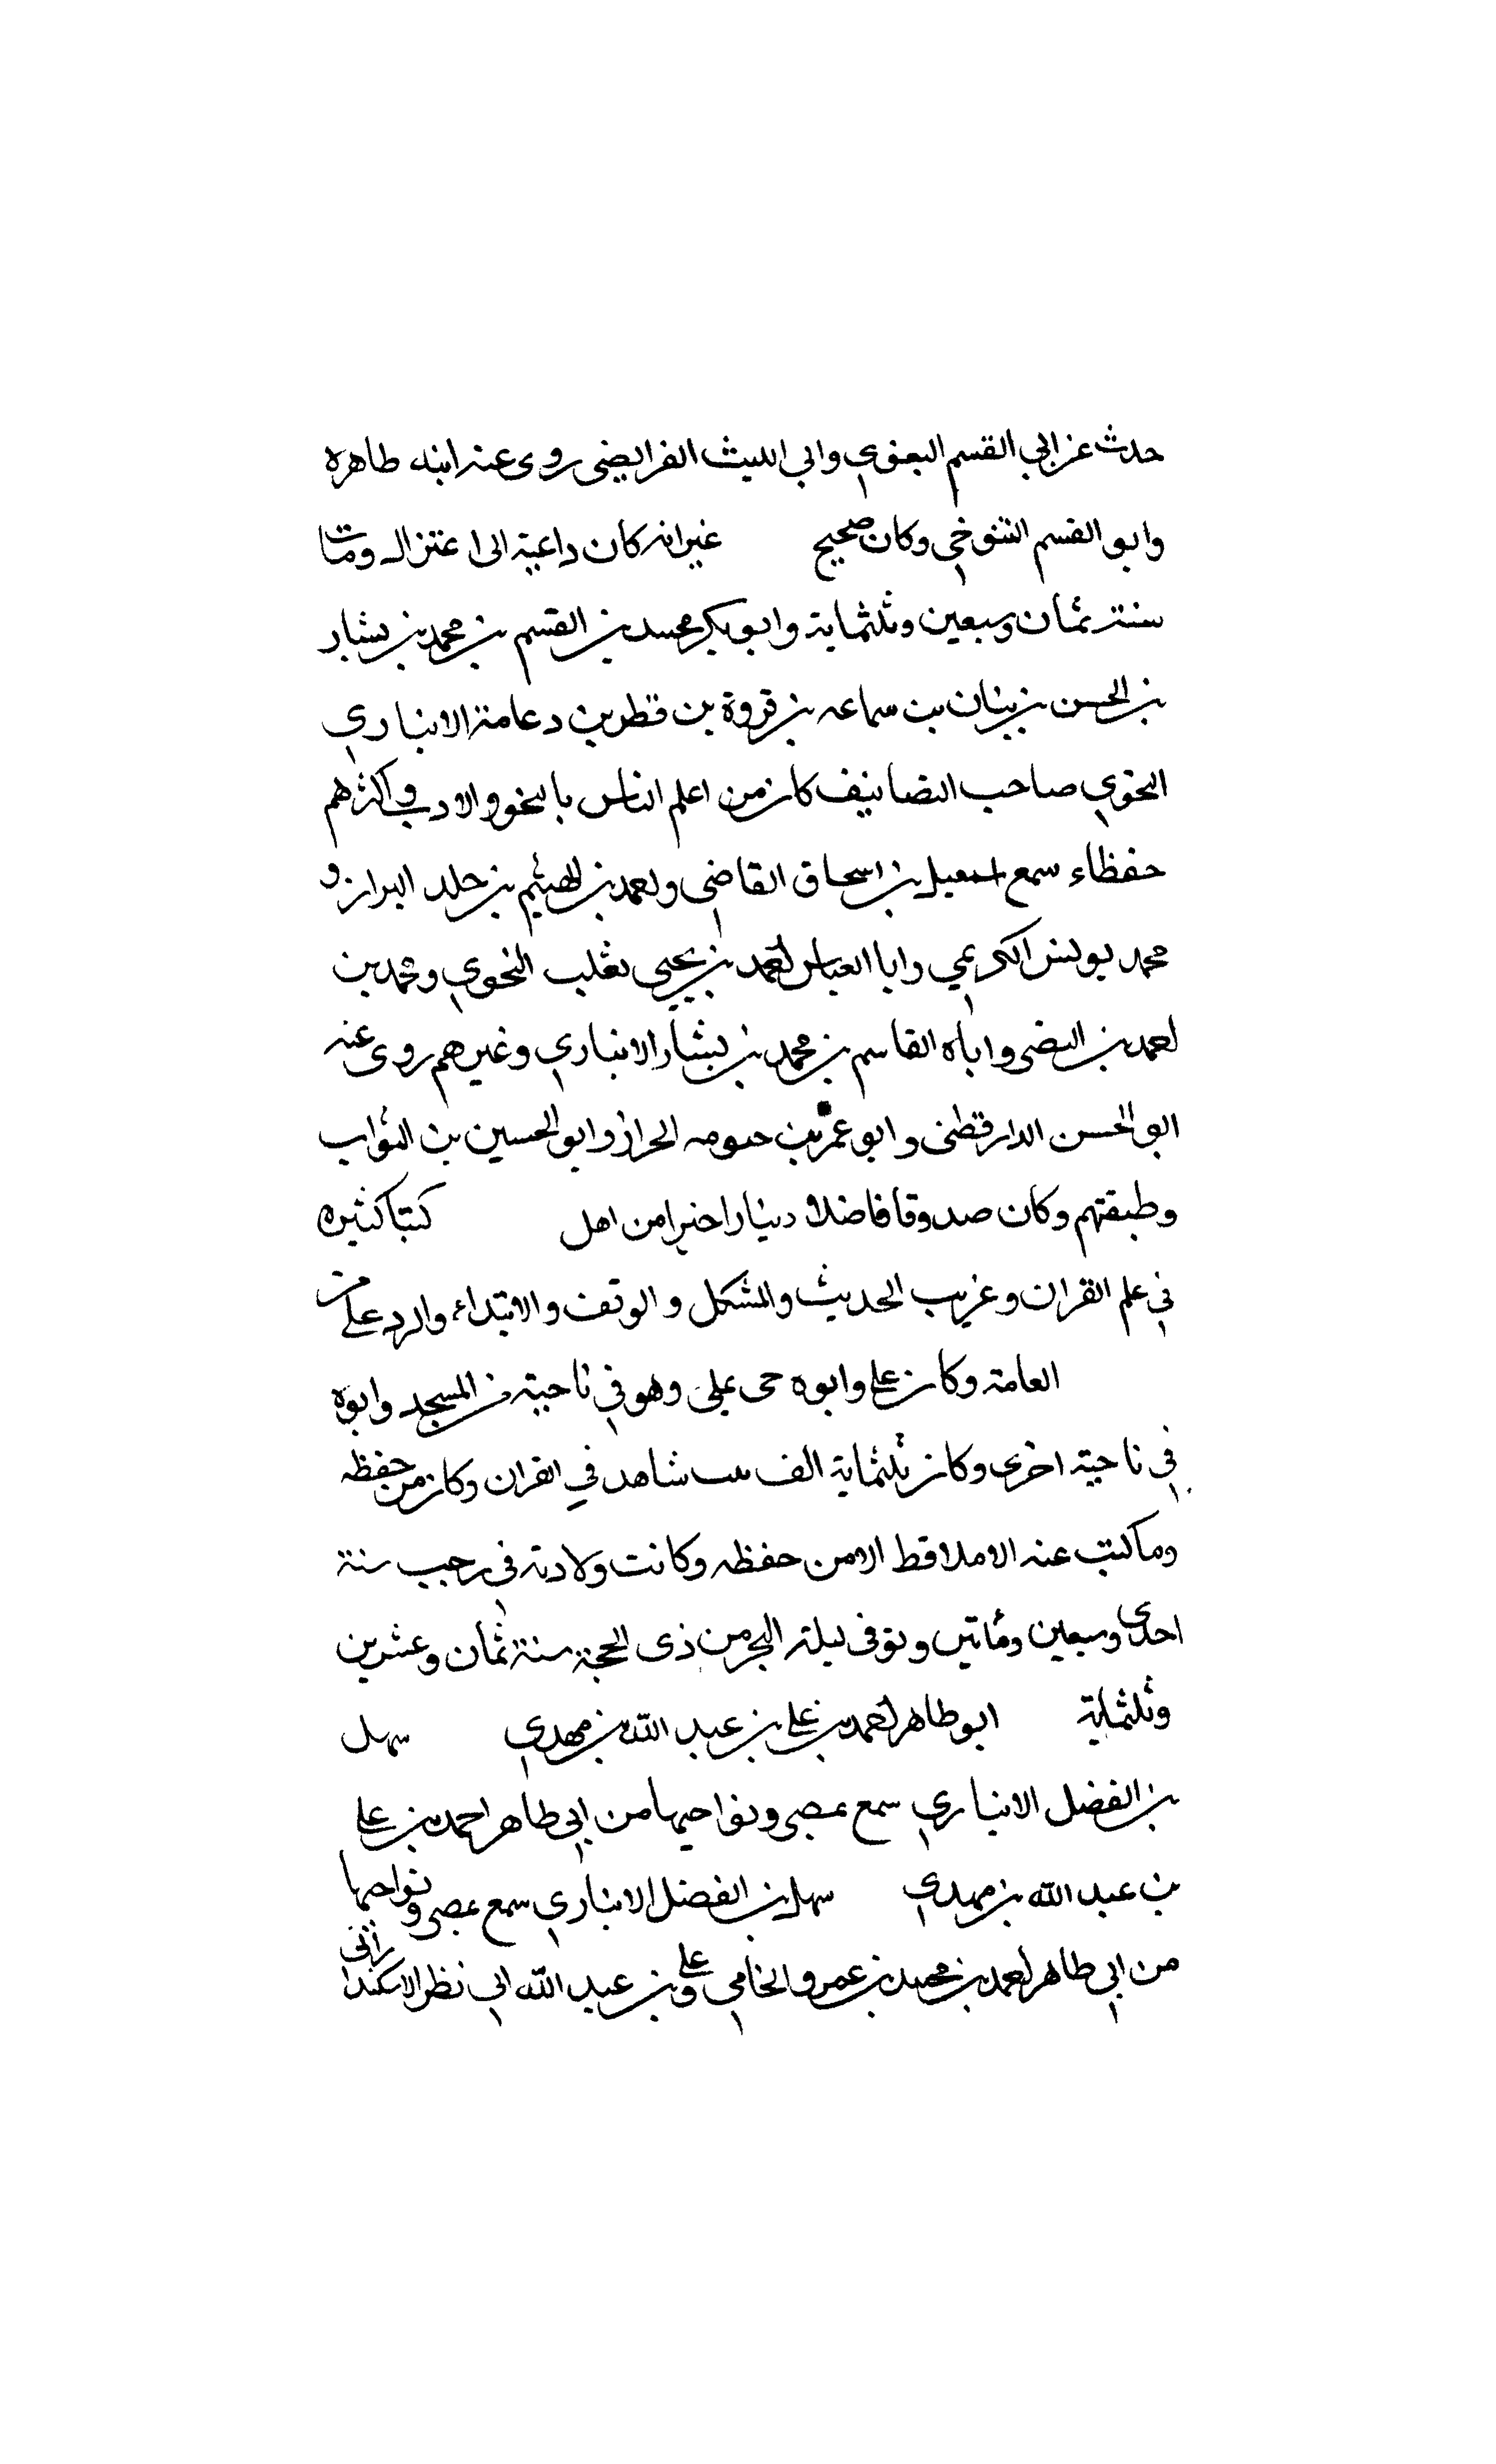 حدث عن ابي القسم البغوي وابي الليث الفرايضى روى عنه ابنه طاهره
وابو القسم التنوخي وكان صحيح غير انه كان داعية الى اعتزال ومات
سنة ثمان وسبعين وثلثماية وابو بكر محمد بن القسم بن محمد بن بشار
بن الحسن بن بنان بن سماعه بن قروة بن قطن بن دعامة الانباري
النحوي صاحب التصانيف كان من اعلم الناس بالنحو والادب واكثرهم
حفظاء سمع اسمعيل بن اسحاق القاضي واحمد بن الهيثم بن خلد البزاز و
محمد يونس الكريمي وابا العباس احمد بن يحيى ثعلب النحوي ومحمد بن
احمد بن النضى واباه القاسم بن محمد بن بشار الانباري وغيرهم روى عنه
ابو الحسن الدارقطنى وابو عمر بن حيويه الخراز وابو الحسين بن البواب
وطبقتهم وكان صدوقا فاضلا دينارا خيرا من اهل كتبا كثيره
في علم القران وغريب الحديث والمشكل والوقف والابتداء والرد على من
العامة وكان على وابوه حى يملى وهو في ناحية من المسجد وابوه
في ناحية اخرى وكان ثلثماية الف بيت شاهد في القران وكان من حفظه
وما كتب عنه الاملا قط الا من حفظه وكانت ولادته في رجب سنة
احدى وسبعين ومأتين وتوفى ليلة البحر من ذى الحجة سنة ثمان وعشرين
وثلثماية ابو طاهر احمد بن على بن عبد الله بن مهدي سهل
بن الفضل الانباري سمع بمصر ونواحيها من ابي طاهر احمد بن على
بن عبد الله بن مهدي سهل بن الفضل الانباري سمع بمصر ونواحيها
من ابي طاهر احمد بن محمد بن عمرو الخامي وعلى بن عبد الله ابي نظر الاسكندراني